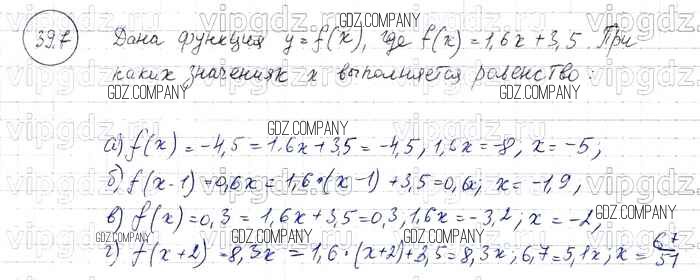 39.7 Дана функция y=f(x), где f(x)=1,6x+3,5. При
каких значениях x выполняется равенство:
а) f(x)=-4,5=1,6x+3,5=-4,5, 1,6x=-8, x=-5;
б) f(x-1)=0,6x=1,6·(x-1)+3,5=0,6x; x=-1,9,
в) f(x)=0,3=1,6x+3,5=0,3, 1,6x=-3,2; x=-2,
г) f(x+2)=8,3x=1,6·(x+2)+3,5=8,3x; 6,7=5,1x; x=67/51
GDZ.COMPANY
GDZ.COMPANY
GDZ.COMPANY
GDZ.COMPANY
GDZ.COMPANY
GDZ.COMPANY
GDZ.COMPANY
GDZ.COMPANY